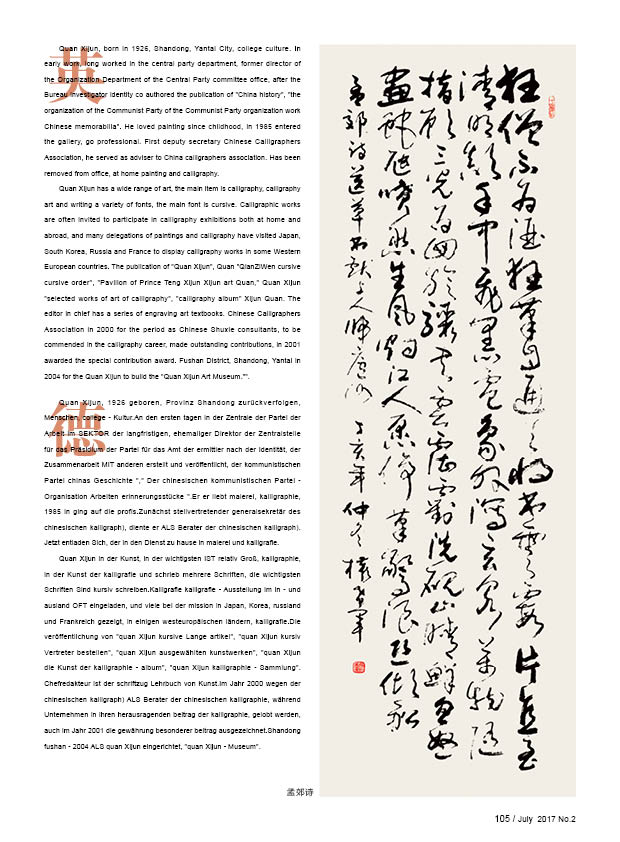 英
Quan Xijun, born in 1926, Shandong, Yantai City, college culture. In
early work, long worked in the central party department, former director of
the Organization Department of the Central Party committee office, after the
Bureau investigator identity co authored the publication of "China history", "the
organization of the Communist Party of the Communist Party organization work
Chinese memorabilia". He loved painting since childhood, in 1985 entered
the gallery, go professional. First deputy secretary Chinese Calligraphers
Association, he served as adviser to China calligraphers association. Has been
removed from office, at home painting and calligraphy.
Quan Xijun has a wide range of art, the main item is calligraphy, calligraphy
art and writing a variety of fonts, the main font is cursive. Calligraphic works
are often invited to participate in calligraphy exhibitions both at home and
abroad, and many delegations of paintings and calligraphy have visited Japan,
South Korea, Russia and France to display calligraphy works in some Western
European countries. The publication of "Quan Xijun", Quan "QianZiWen cursive
cursive order", "Pavilion of Prince Teng Xijun Xijun art Quan," Quan Xijun
"selected works of art of calligraphy", "calligraphy album" Xijun Quan. The
editor in chief has a series of engraving art textbooks. Chinese Calligraphers
Association in 2000 for the period as Chinese Shuxie consultants, to be
commended in the calligraphy career, made outstanding contributions, in 2001
awarded the special contribution award. Fushan District, Shandong, Yantai in
2004 for the Quan Xijun to build the "Quan Xijun Art Museum."".
德
Quan Xijun, 1926 geboren, Provinz Shandong zurückverfolgen,
Menschen, college - Kultur.An den ersten tagen in der Zentrale der Partei der
Arbeit im SEKTOR der langfristigen, ehemaliger Direktor der Zentralstelle
für das Präsidium der Partei für das Amt der ermittler nach der Identität, der
Zusammenarbeit MIT anderen erstellt und veröffentlicht, der kommunistischen
Partei chinas Geschichte "," Der chinesischen kommunistischen Partei -
Organisation Arbeiten erinnerungsstücke ".Er er liebt malerei, kalligraphie,
1985 in ging auf die profis.Zunächst stellvertretender generalsekretär des
chinesischen kalligraph), diente er ALS Berater der chinesischen kalligraph).
Jetzt entladen Sich, der in den Dienst zu hause in malerei und kalligrafie.
Quan Xijun in der Kunst, in der wichtigsten IST relativ Groß, kalligraphie,
in der Kunst der kalligrafie und schrieb mehrere Schriften, die wichtigsten
Schriften Sind kursiv schreiben.Kalligrafie kalligrafie - Ausstellung im in - und
ausland OFT eingeladen, und viele bei der mission in Japan, Korea, russland
und Frankreich gezeigt, in einigen westeuropäischen ländern, kalligrafie.Die
veröffentlichung von "quan Xijun kursive Lange artikel", "quan Xijun kursiv
Vertreter bestellen", "quan Xijun ausgewählten kunstwerken", "quan Xijun
die Kunst der kalligraphie - album", "quan Xijun kalligraphie - Sammlung".
Chefredakteur ist der schriftzug Lehrbuch von Kunst.Im Jahr 2000 wegen der
chinesischen kalligraph) ALS Berater der chinesischen kalligraphie, während
Unternehmen in ihren herausragenden beitrag der kalligraphie, gelobt werden,
auch im Jahr 2001 die gewährung besonderer beitrag ausgezeichnet.Shandong
fushan - 2004 ALS quan Xijun eingerichtet, "quan Xijun - Museum".
狂僧不为酒狂筆自通天将书云霞片直至
清明巅手中飛黑電象外瀉玄泉萬物随
指顾三光为回旋骤书雲霮䨴洗硯山晴鲜忽怒
畫蛇虺喷然生風烟江人愿停筆驚浪恐倾船
孟郊诗送草书献上人归庐山 丁亥年仲冬 權希軍
孟郊诗
105 / July 2017 No.2